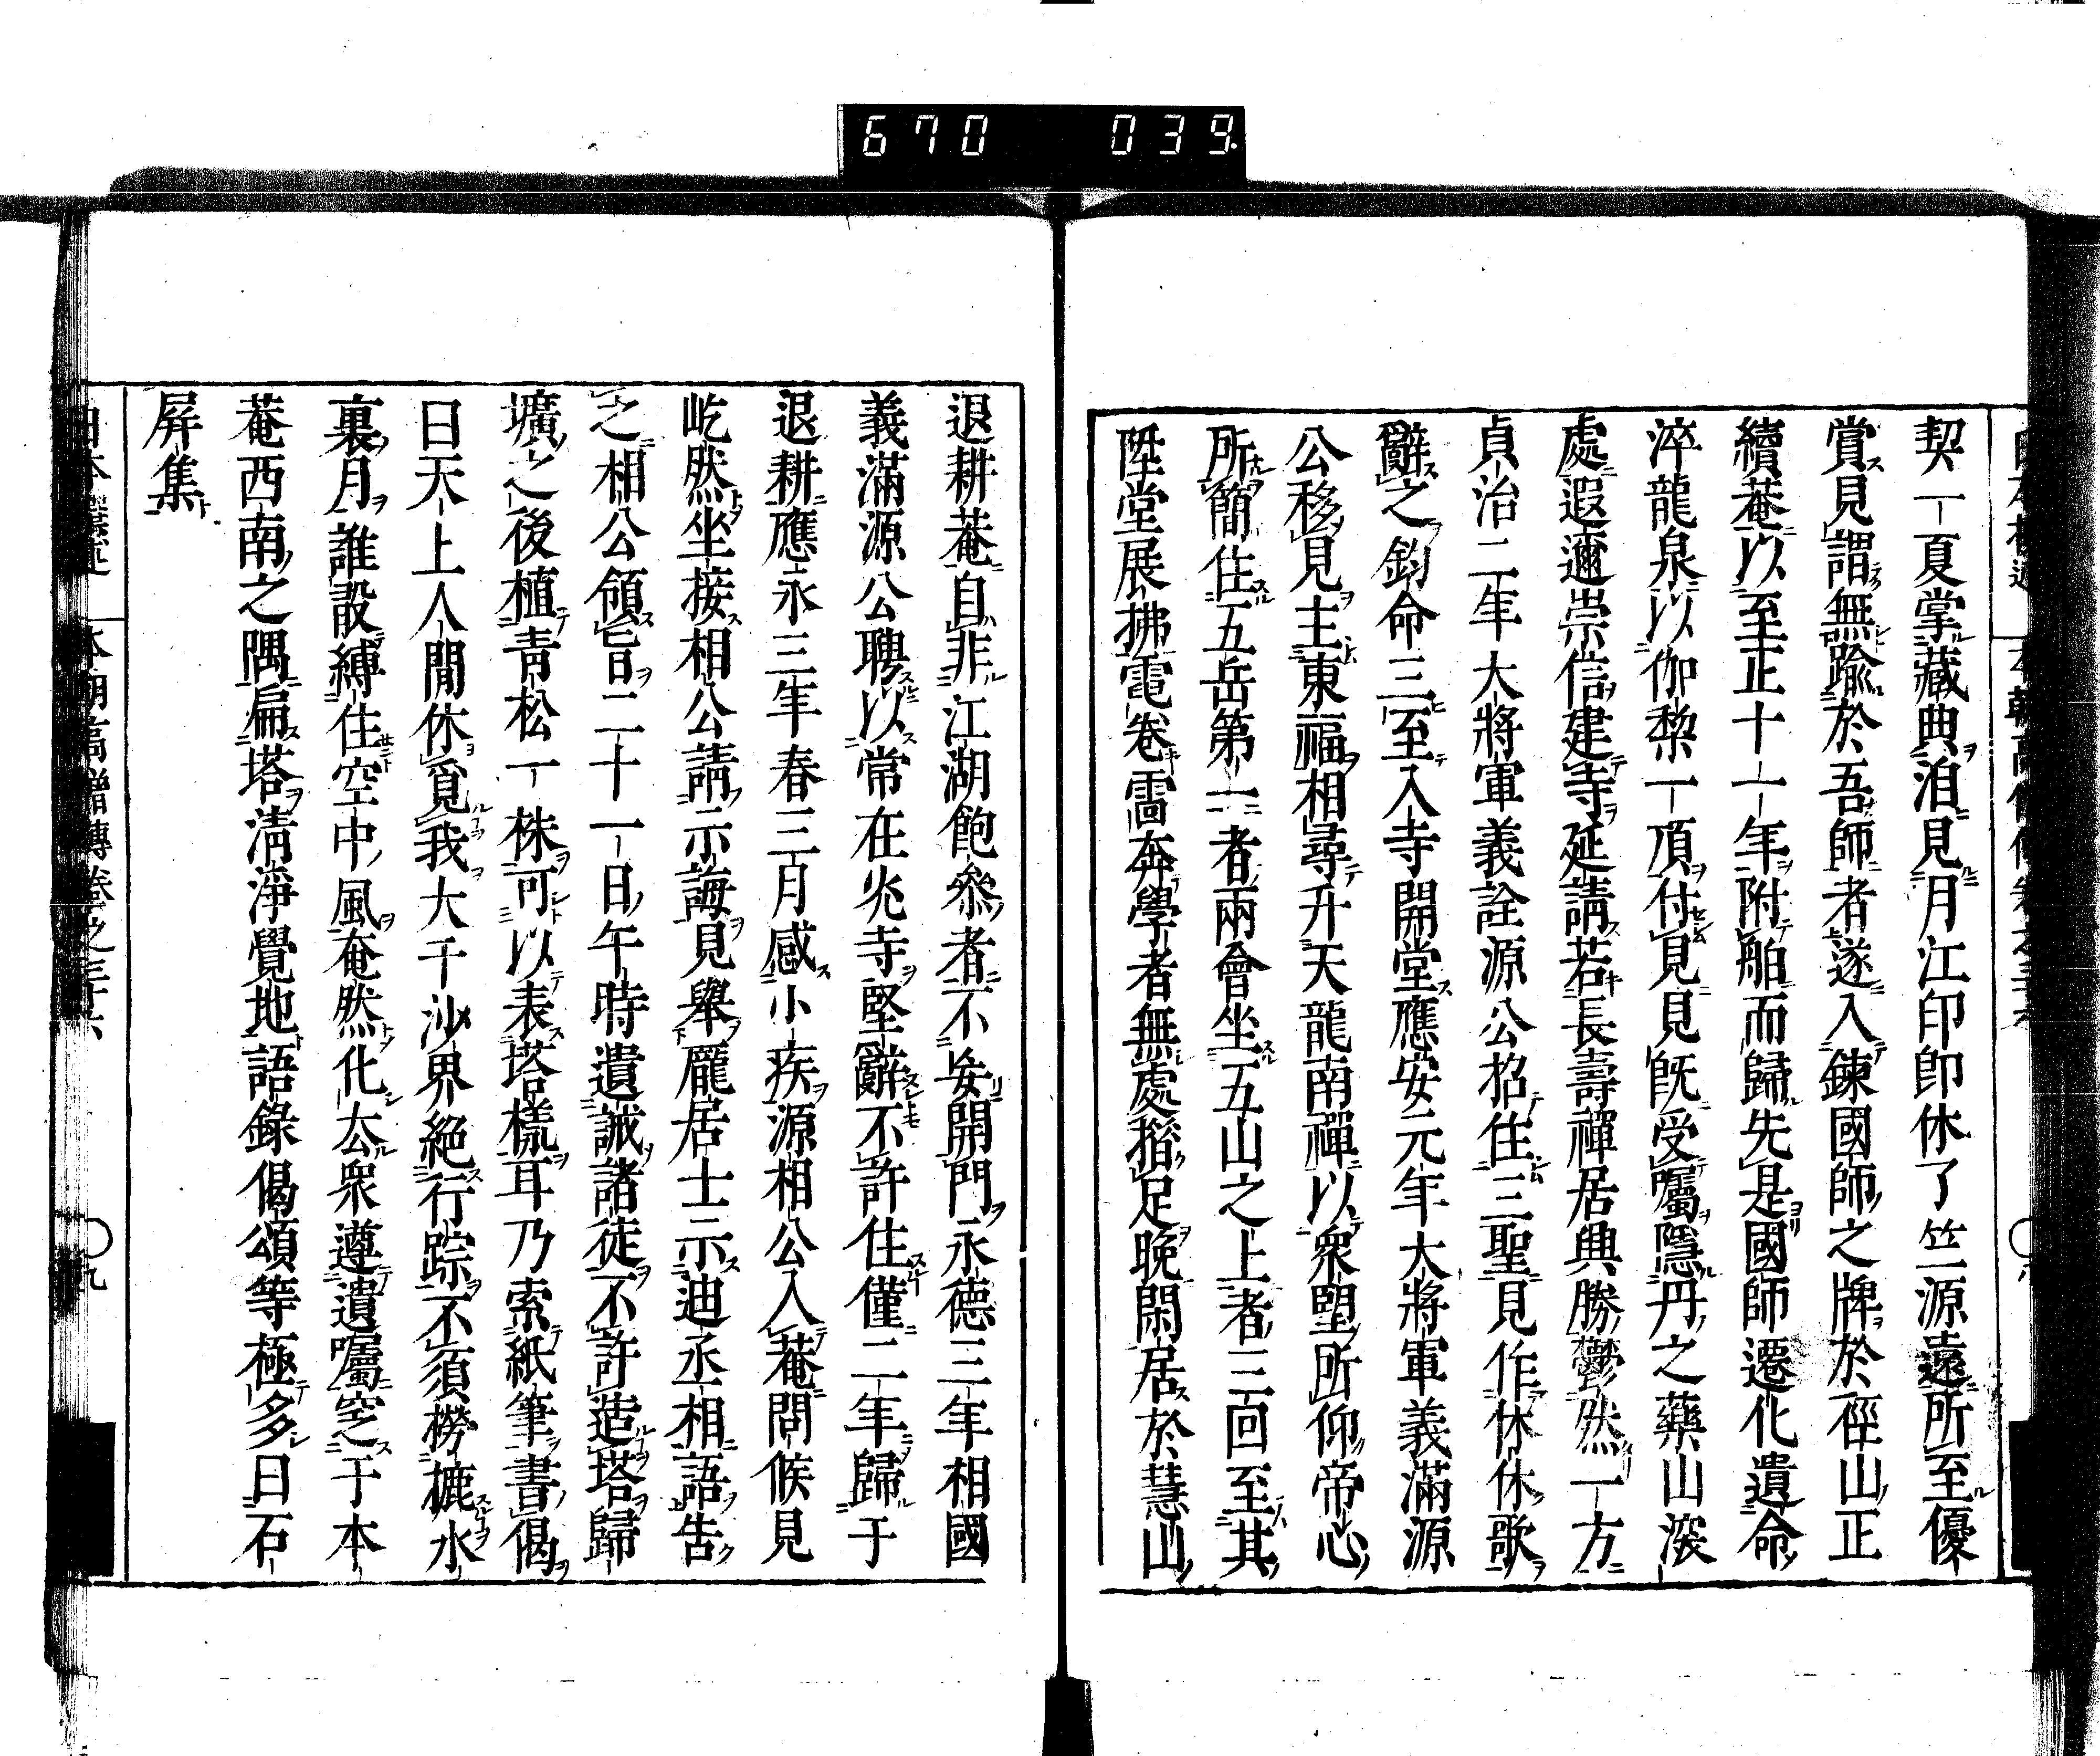 670 039
契一夏掌藏典洎見月江印印休了竺源遠所至優
賞見謂無踰於吾師者遂入鍊國師之牌於徑山正
續菴以至正十一年附舶而歸先是國師遷化遺命
淬龍泉以伽棃一頂付見見既受囑隱丹之藥山滾
處遐邇崇信建寺延請若長壽禪居興勝鬱然一方
貞治二年大將軍義詮源公招住三聖見作休休歌
辭之鈞命三至入寺開堂應安元年大將軍義滿源
公移見主東福相尋升天龍南禪以衆望所仰帝心
所簡住五岳第一者兩會坐五山之上者三回至其
陞堂展拂電卷雷奔學者無處措足晚閑居於慧山
退耕菴自非江湖飽參者不妄開門永德三年相國
義滿源公聘以常在光寺堅辭不許住僅二年歸于
退耕應永三年春三月感小疾源相公入菴問候見
屹然坐接相公請示誨見舉龐居士示迪丞相語告
之相公領旨二十一日午時遺誡諸徒不許造塔歸
壙之後植靑松一株可以表塔樣耳乃索紙筆書偈
曰天上人間休覓我大千沙界絶行踪不須撈摝水
裏月誰設縛住空中風奄然化太衆遵遺囑窆于本
菴西南之隅扁塔淸淨覺地語錄偈頌等極多曰石
屏集
本朝高僧傳卷之三十六
九